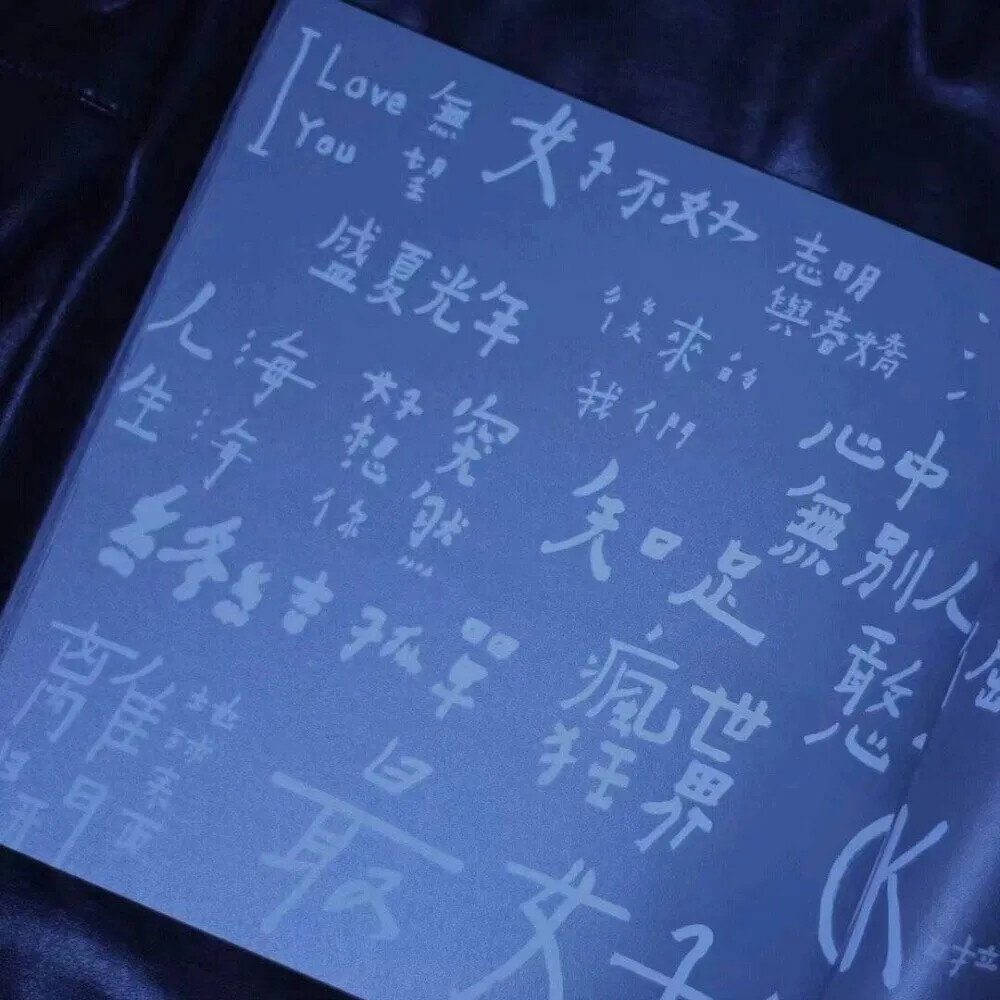 I Love
You
無望
好不好
志明
與春嬌
盛夏光年
後來的
我們
人生
海海
好想你
突然
心中
無別人
知足
終結孤單
瘋狂
世界
憨
離
地球表面
最
好